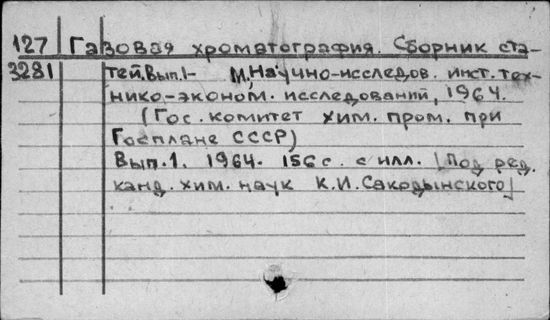 127 Газовая хроматография. Сборник ста-
3281 тей, Вып.1- М, Научно-исследов. инст. тех-
нико-эконом. исследований, 1964.
(Гос. комитет хим. пром. при
Госплане СССР)
Вып.1. 1964. 156 с. с илл. [Под ред.
канд. хим. наук К.И. Сакодынского]